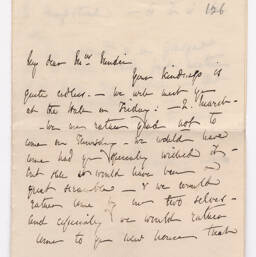 126
My dear Mrs
Your kindness is
quite endless. — we will meet you
at the on Friday: — 2. March —
— we are rather glad not to
come on Thursday — we would have
come had you specially wished it —
but else it would have been a
great scramble — & we would
rather come by our two selves —
and especially we would rather
come to your new house than